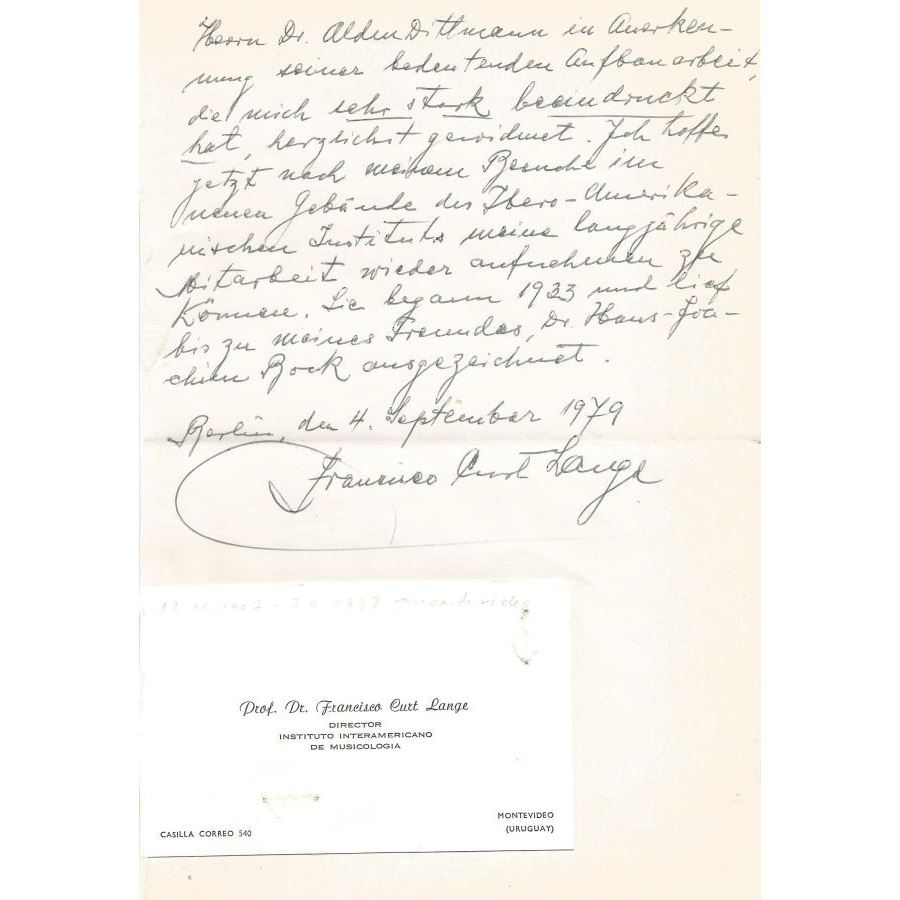 Herrn Dr. Alden Dittmann in Anerken-
nung seiner bedeutenden Aufbauarbeit,
die mich sehr stark beeindruckt
hat, herzlichst gewidmet. Ich hoffe
jetzt nach meinem Besuche im
neuen Gebäude des Ibero-Amerika-
nischen Instituts meine langjährige
Mitarbeit wieder aufnehmen zu
können. Sie begann 1933 und lief
bis zu meines Freundes, Dr. Hans-Joa-
chim Bock ausgezeichnet.
Berlin, den 4. September 1979
Francisco Curt Lange
1997 Montevideo
Prof. Dr. Francisco Curt Lange
DIRECTOR
INSTITUTO INTERAMERICANO
DE MUSICOLOGIA
MONTEVIDEO
CASILLA CORREO 540
(URUGUAY)